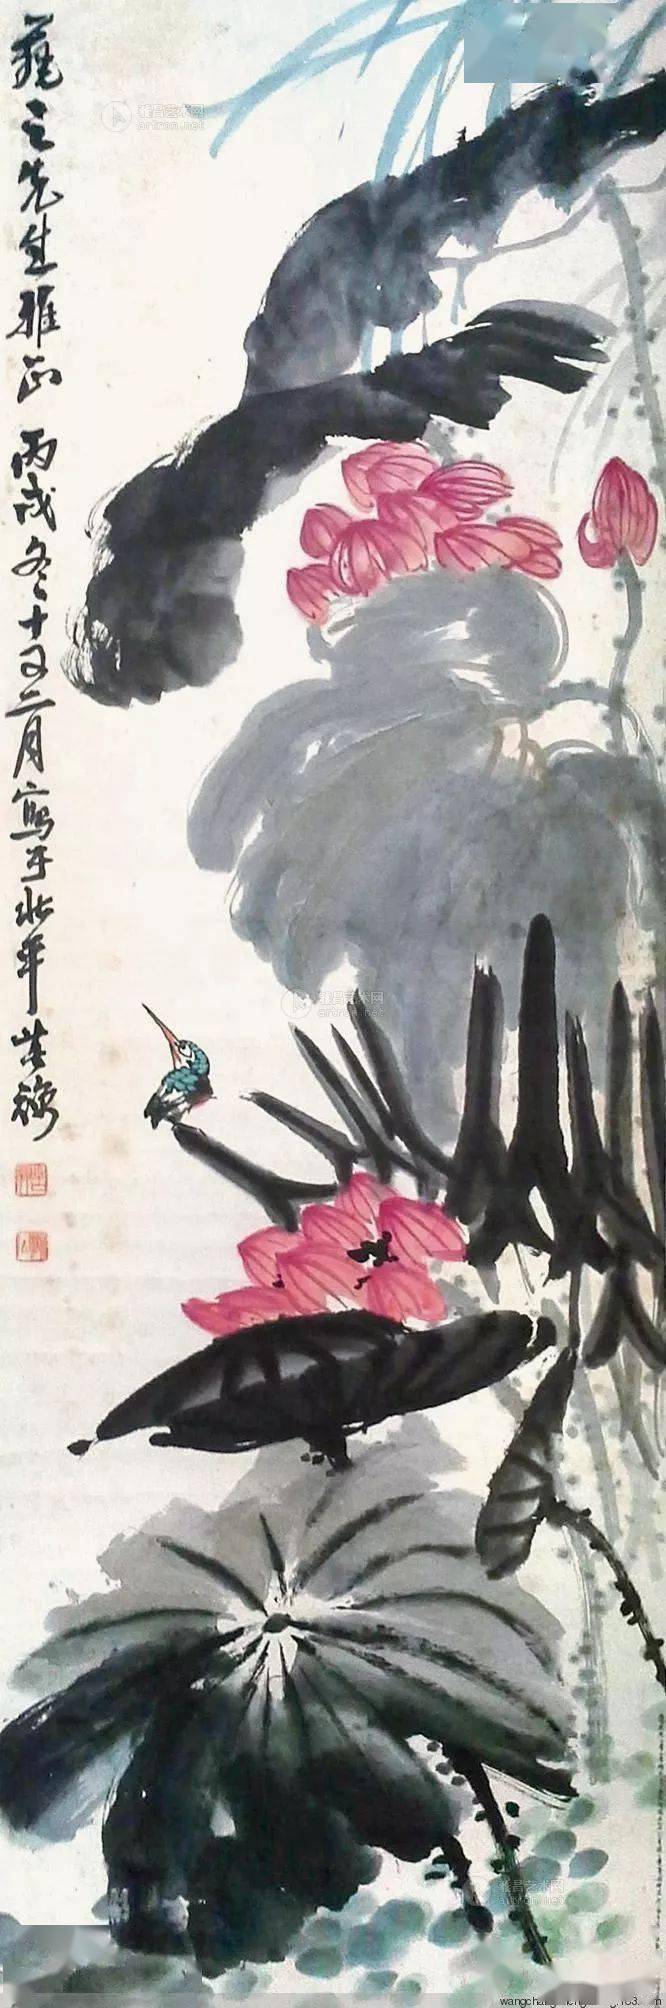 先生雅正 丙戌冬十又二月写于北平 苦禅
雅昌艺术网
artron.net
雅昌艺术网
artron.net
雅昌艺术网
artron.net